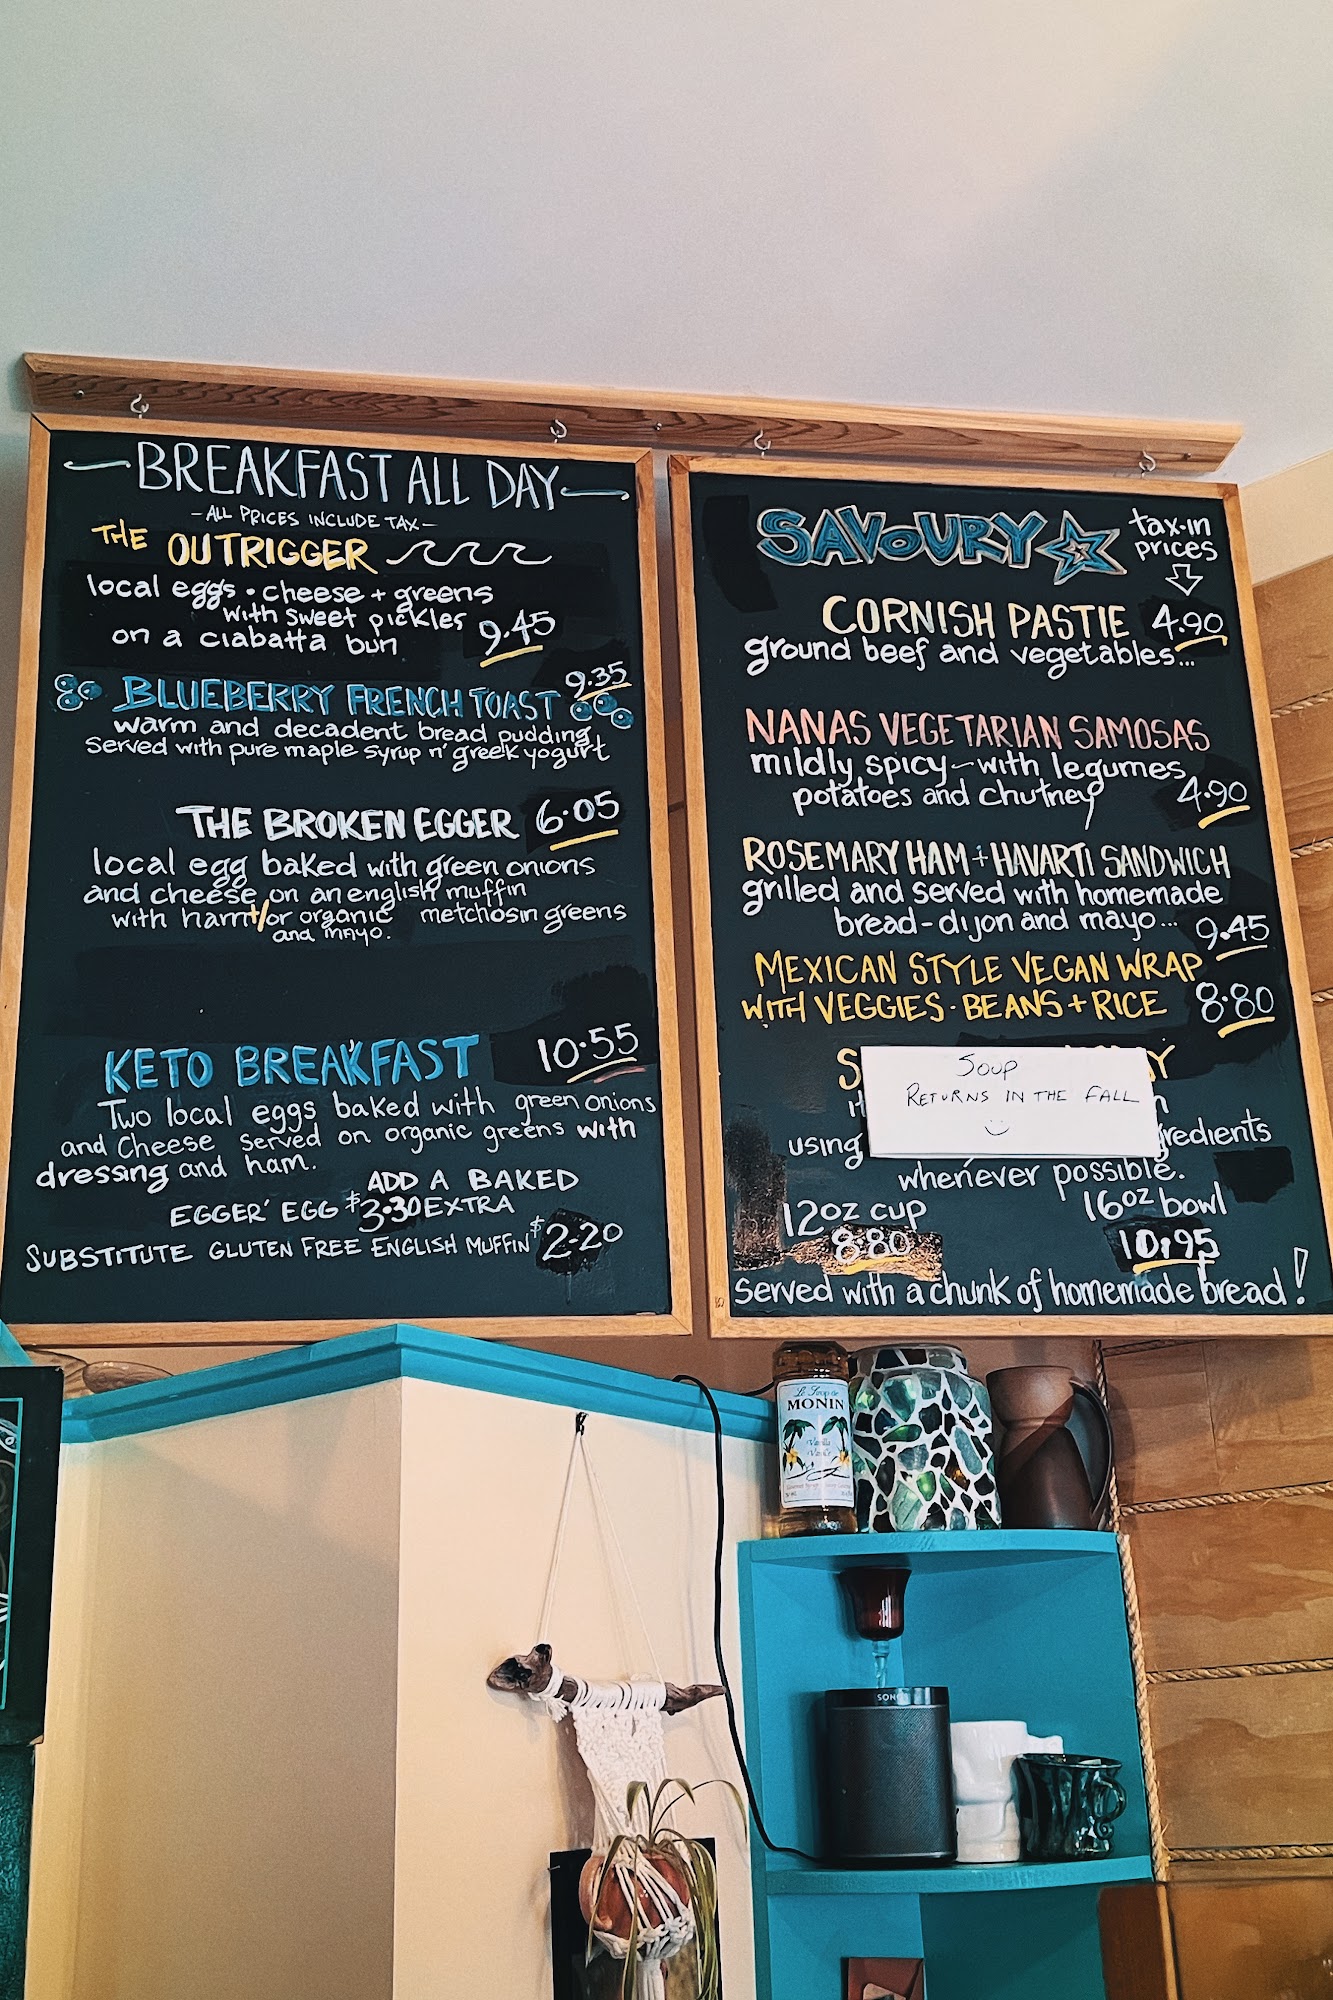 BREAKFAST ALL DAY
- ALL PRICES INCLUDE TAX -
THE OUTRIGGER
local eggs • cheese + greens
with sweet pickles
on a ciabatta bun 9.45
BLUEBERRY FRENCH TOAST 9.35
warm and decadent bread pudding
served with pure maple syrup n' greek yogurt
THE BROKEN EGGER 6.05
local egg baked with green onions
and cheese on an english muffin
with ham +/or organic metchosin greens
and mayo.
KETO BREAKFAST 10.55
Two local eggs baked with green onions
and Cheese served on organic greens with
dressing and ham.
ADD A BAKED
EGGER' EGG $3.30 EXTRA
SUBSTITUTE GLUTEN FREE ENGLISH MUFFIN $2.20
SAVOURY
tax-in
prices
CORNISH PASTIE 4.90
ground beef and vegetables...
NANAS VEGETARIAN SAMOSAS
mildly spicy - with legumes
potatoes and chutney 4.90
ROSEMARY HAM + HAVARTI SANDWICH
grilled and served with homemade
bread - dijon and mayo... 9.45
MEXICAN STYLE VEGAN WRAP
WITH VEGGIES - BEANS + RICE 8.80
Soup
RETURNS IN THE FALL
using
whenever possible.
12oz cup 16oz bowl
8.80 10.95
served with a chunk of homemade bread!
Le Sirop de
MONIN
SONOS